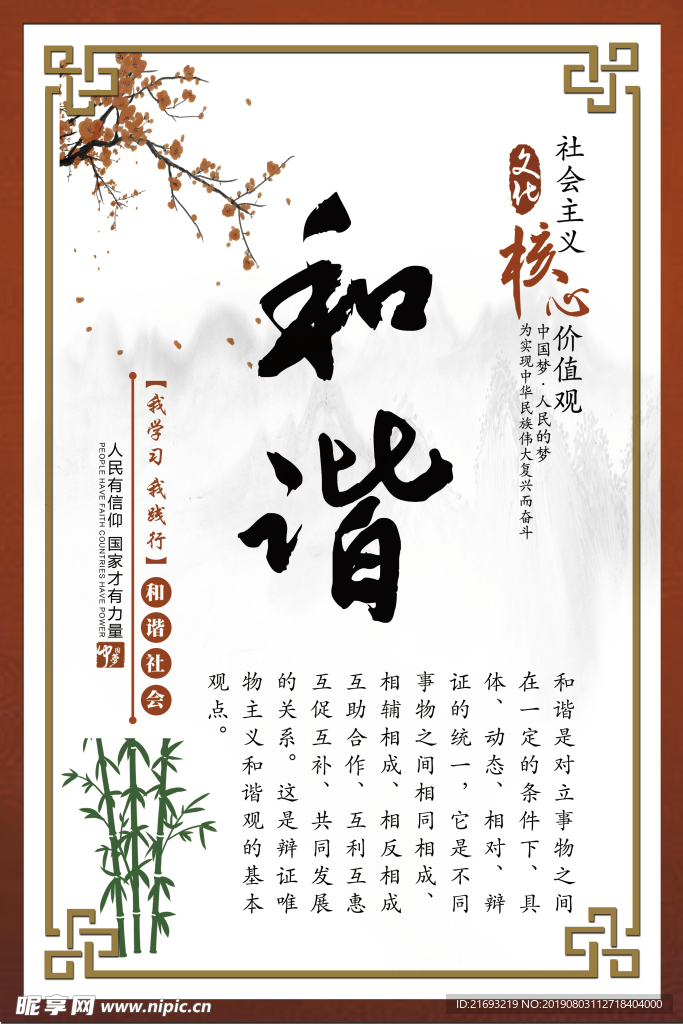 社会主义
文化
核心
价值观
中国梦·人民的梦
为实现中华民族伟大复兴而奋斗
和谐
【我学习 我践行】
和谐社会
人民有信仰 国家才有力量
PEOPLE HAVE FAITH COUNTRIES HAVE POWER
中国梦
和谐是对立事物之间
在一定的条件下、具
体、动态、相对、辩
证的统一，它是不同
事物之间相同相成、
相辅相成、相反相成
互助合作、互利互惠
互促互补、共同发展
的关系。这是辩证唯
物主义和谐观的基本
观点。
昵享网 www.nipic.cn
ID:21693219 NO:20190803112718404000